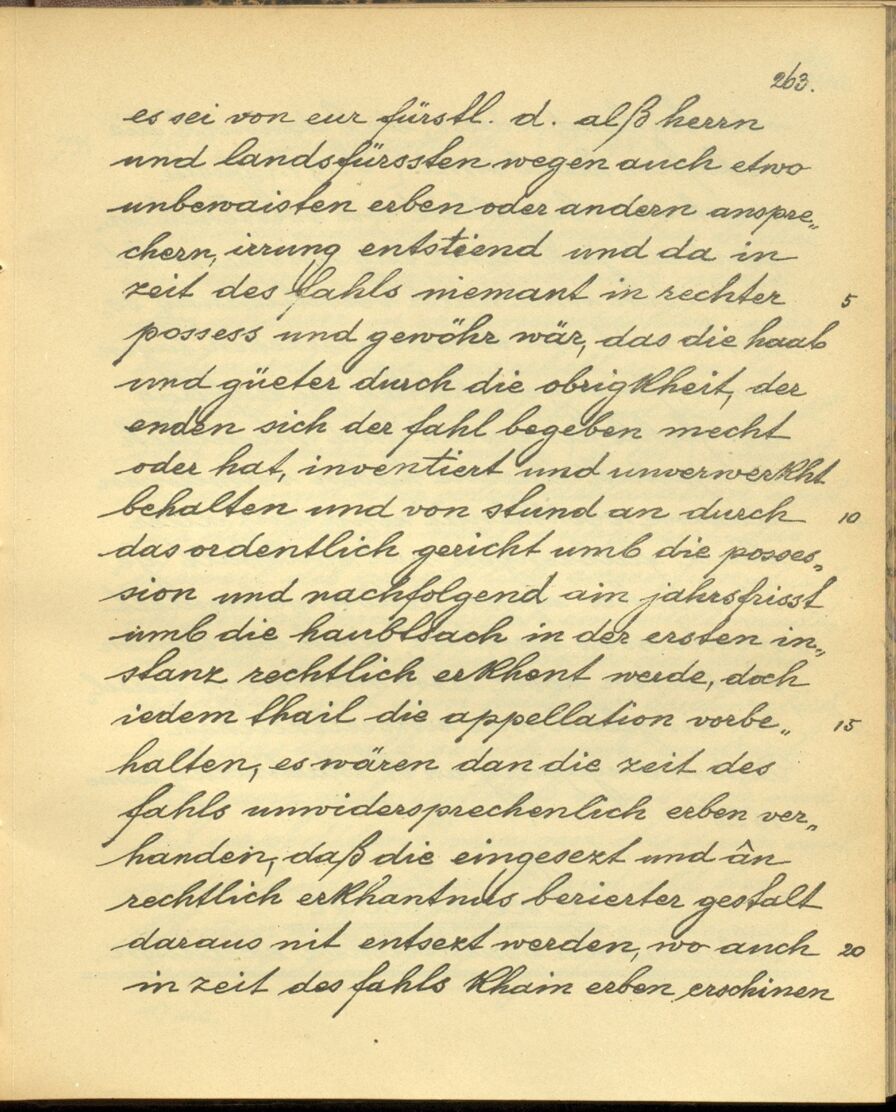 263.
es sei von eur fürstl. d. alß herrn
und landsfürssten wegen auch etwo
unbewaisten erben oder andern anspre„
chern, irrung entstiend und da in
zeit des fahls niemant in rechter 5
possess und gewöhr wär, das die haab
und güeter durch die obrigkheit, der
enden sich der fahl begeben mecht
oder hat, inventiert und unverwerkht
behalten und von stund an durch 10
das ordentlich gericht umb die posses„
sion und nachfolgend ain jahrsfrisst
umb die haubtsach in der ersten in„
stanz rechtlich erkhent werde, doch
iedem thail die appellation vorbe„ 15
halten, es wären dan die zeit des
fahls unwidersprechenlich erben ver„
handen, daß die eingesezt und ân
rechtlich erkhantnus berierter gestalt
daraus nit entsezt werden, wo auch 20
in zeit des fahls khain erben erschinen